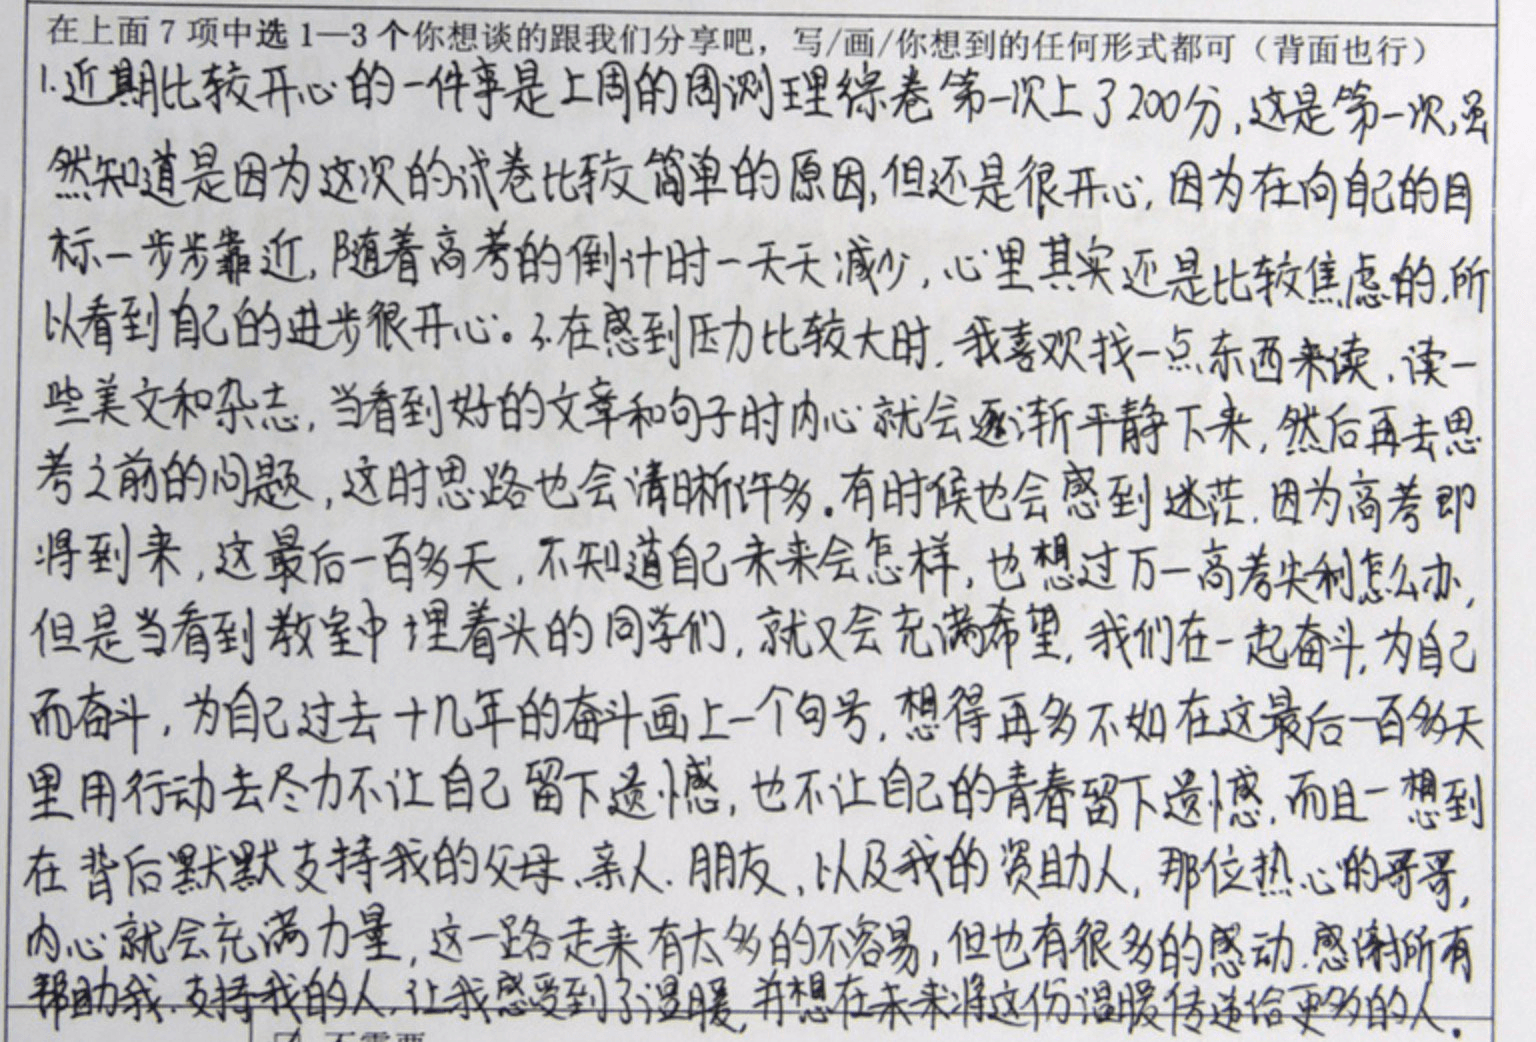 在上面 7 项中选 1—3 个你想谈的跟我们分享吧，写/画/你想到的任何形式都可（背面也行）
1.近期比较开心的一件事是上周的周测理综卷第一次上了200分，这是第一次，虽
然知道是因为这次的试卷比较简单的原因，但还是很开心，因为在向自己的目
标一步步靠近，随着高考的倒计时一天天减少，心里其实还是比较焦虑的，所
以看到自己的进步很开心。3.在感到压力比较大时，我喜欢找一点东西来读，读一
些美文和杂志，当看到好的文章和句子时内心就会逐渐平静下来，然后再去思
考之前的问题，这时思路也会清晰许多。有时候也会感到迷茫，因为高考即
将到来，这最后一百多天，不知道自己未来会怎样，也想过万一高考失利怎么办，
但是当看到教室中埋着头的同学们，就又会充满希望，我们在一起奋斗，为自己
而奋斗，为自己过去十几年的奋斗画上一个句号，想得再多不如在这最后一百多天
里用行动去尽力不让自己留下遗憾，也不让自己的青春留下遗憾，而且一想到
在背后默默支持我的父母、亲人、朋友，以及我的资助人，那位热心的哥哥，
内心就会充满力量，这一路走来有太多的不容易，但也有很多的感动，感谢所有
帮助我、支持我的人，让我感受到了温暖，并想在未来将这份温暖传递给更多的人。
不需要